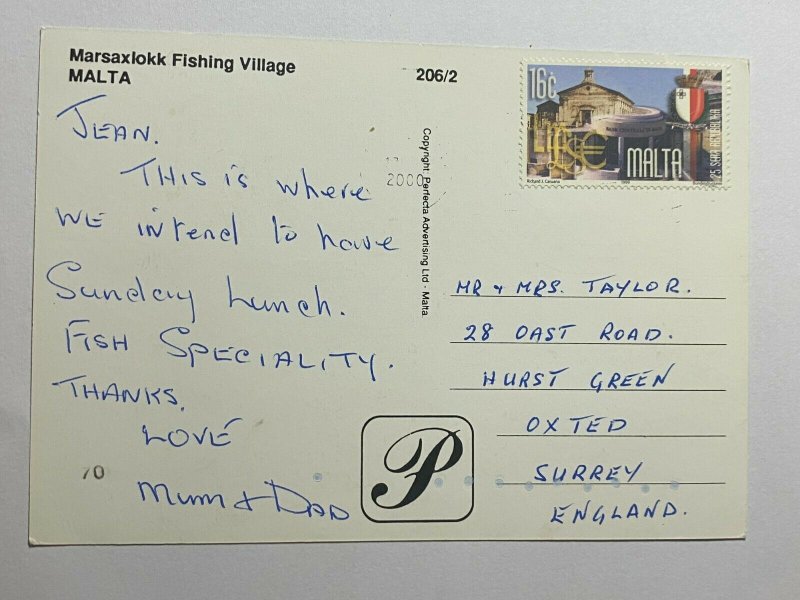 Marsaxlokk Fishing Village
MALTA
206/2
JEAN.
THIS is where
WE intend to have
Sunday Lunch.
FISH SPECIALITY.
THANKS.
LOVE
Mum & DAD
70
2000
Copyright: Perfecta Advertising Ltd - Malta.
16c
MALTA
25 SNA REPUBBLIKA
Richard J. Caruana
1999
MR & MRS. TAYLOR.
28 OAST ROAD.
HURST GREEN
OXTED
SURREY
ENGLAND.
P